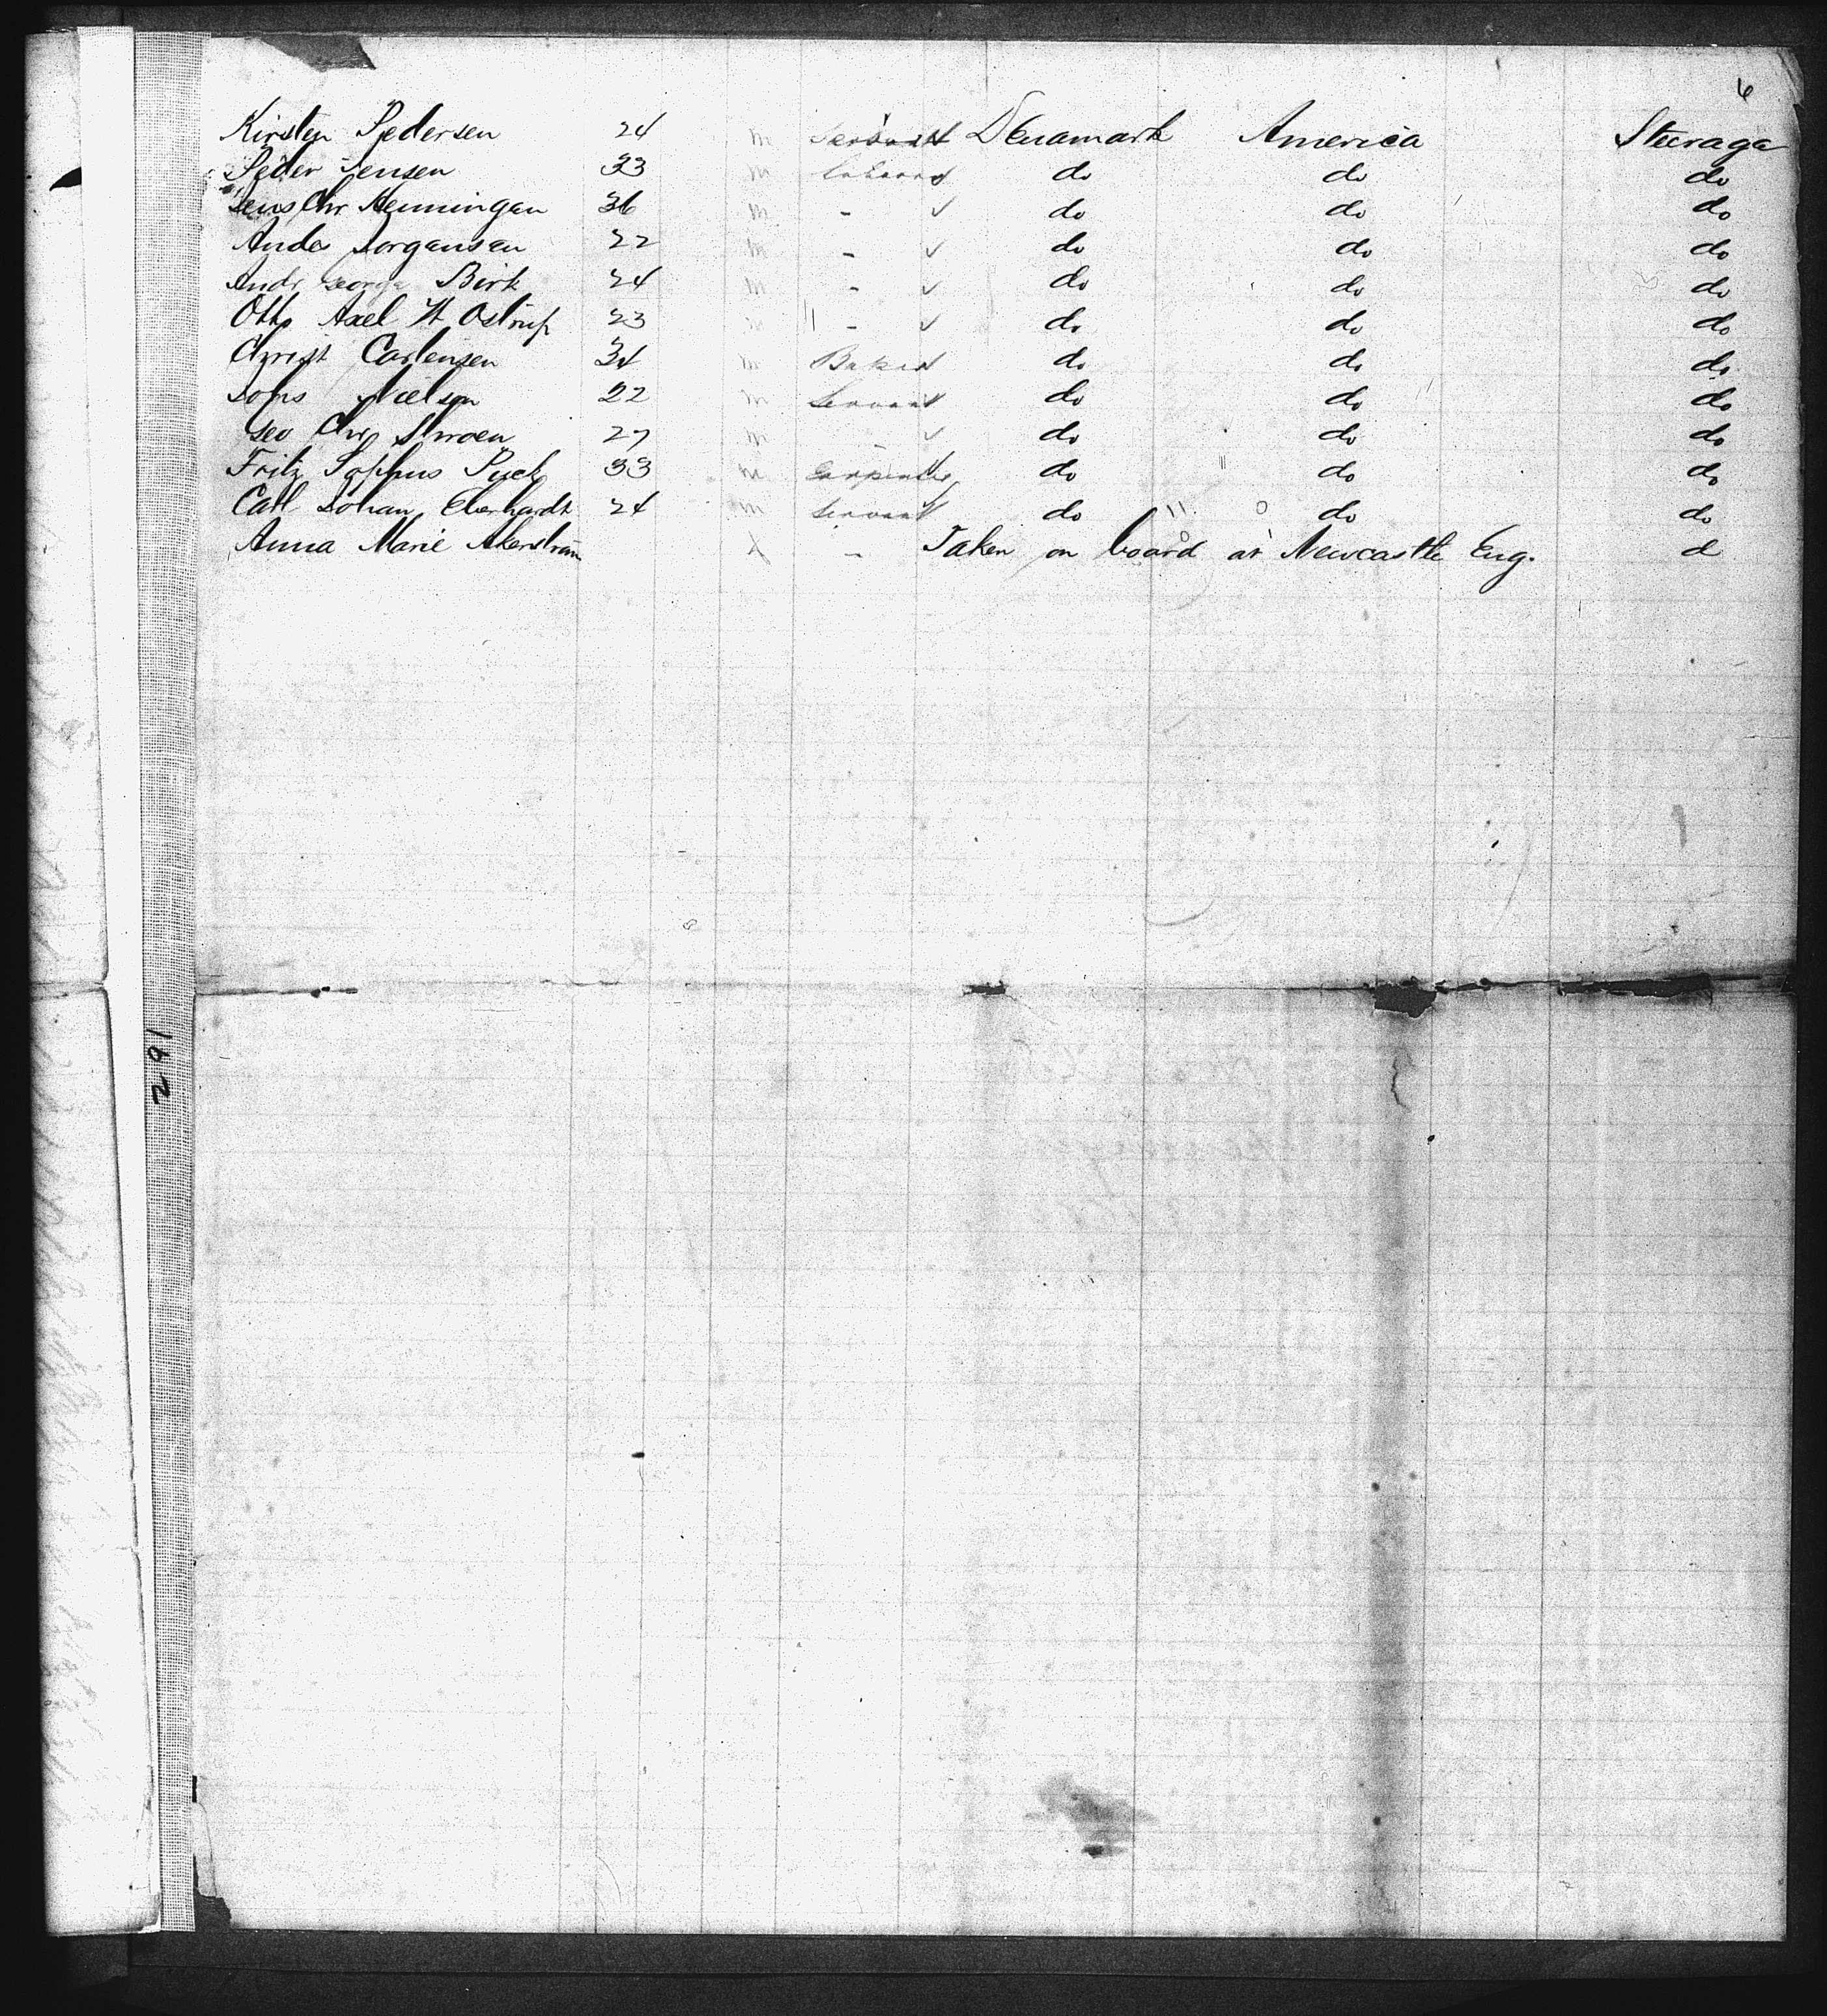 6
Kirsten Pedersen 24 m Servant Denamark America Steerage
Peder Jensen 33 m Laborer do do do
Jens Chr Henningen 36 m - ✓ do do do
Ande Jorgensen 22 m - ✓ do do do
Andr George Birk 24 m - ✓ do do do
Otto Axel W Ostrup 23 m - ✓ do do do
Christ Carlensen 34 m Baker do do do
Johs Nielsen 22 m Servant do do do
Chr 27 m - ✓ do do do
Fritz Sophus 33 m Carpenter do do do
Carl Johan Eberhardt 24 m Servant do do do
Anna Marie Akerstram f - Taken on board at Newcastle Eng. d
291